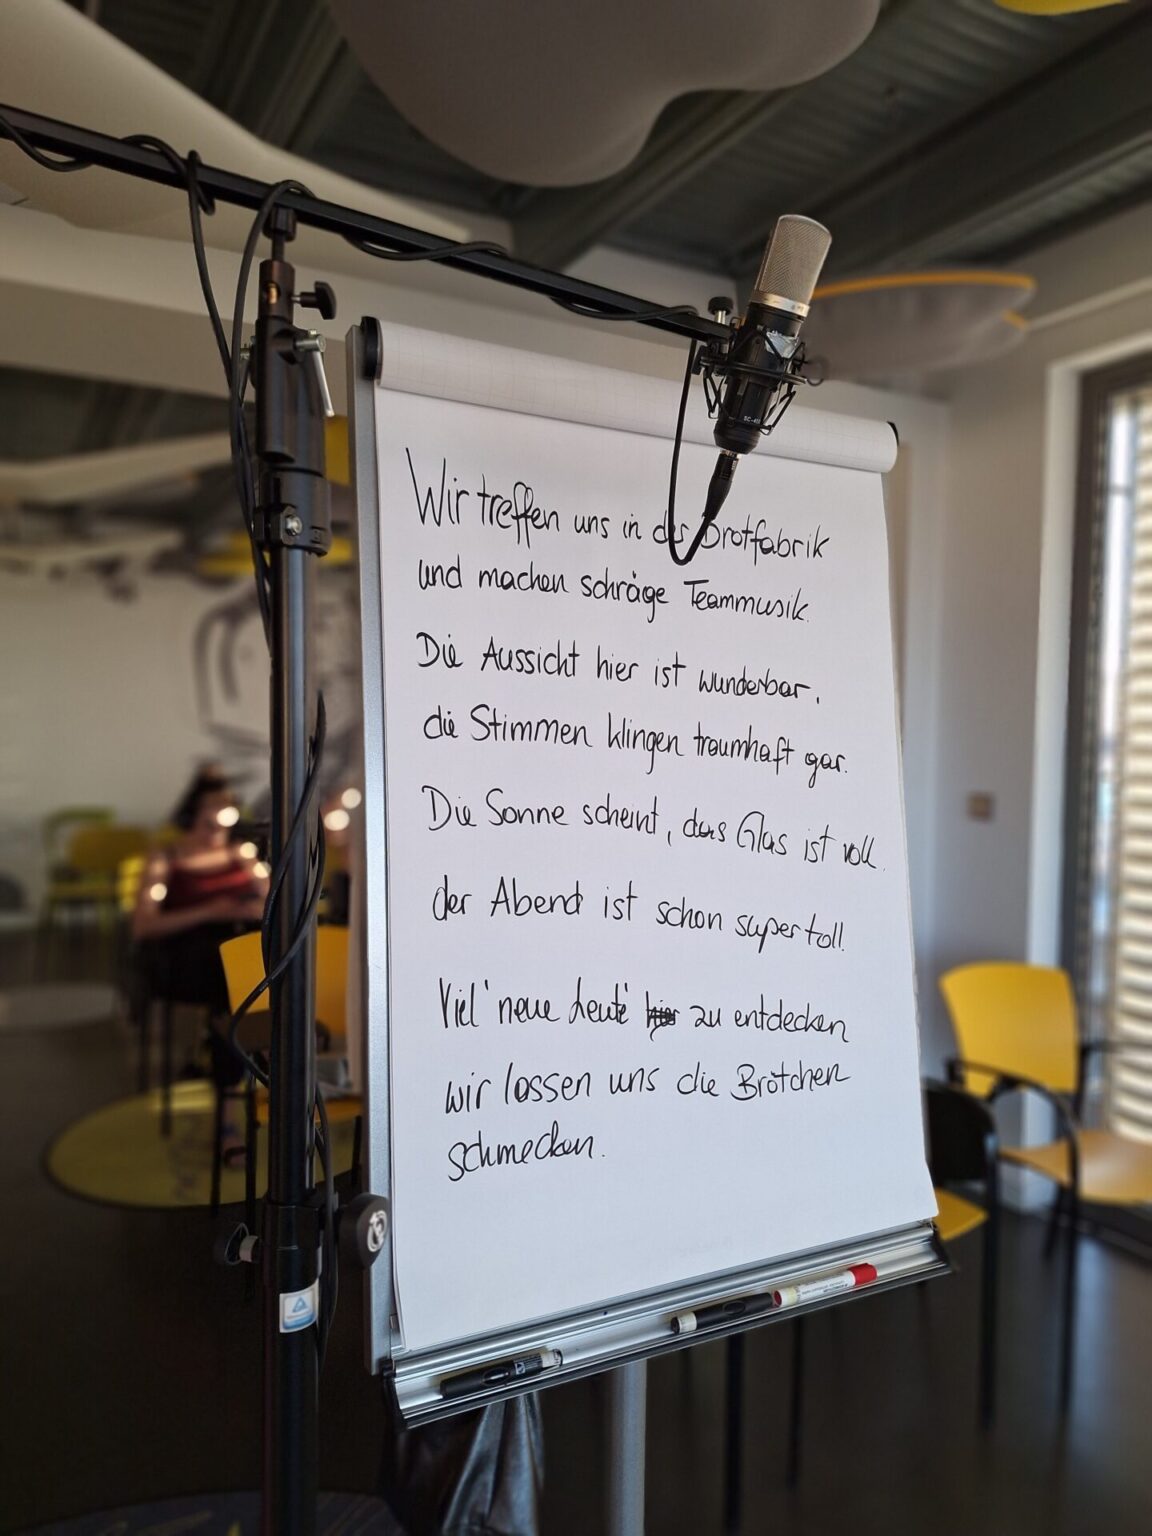 Wir treffen uns in der Brotfabrik
und machen schräge Teammusik.
Die Aussicht hier ist wunderbar,
die Stimmen klingen traumhaft gar.
Die Sonne scheint, das Glas ist voll.
der Abend ist schon super toll!
Viel neue Leute zu entdecken
wir lassen uns die Brötchen
schmecken.